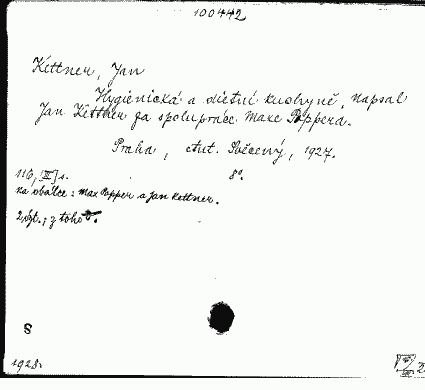 100442
Kettner, Jan
Hygienická a dietní kuchyně, napsal
Jan Kettner za spolupráce Maxe Poppera.
Praha, Ant. Svěcený, 1927.
116, [III] s. 8°.
Na obálce: Max Popper a Jan Kettner.
z toho
S
1928